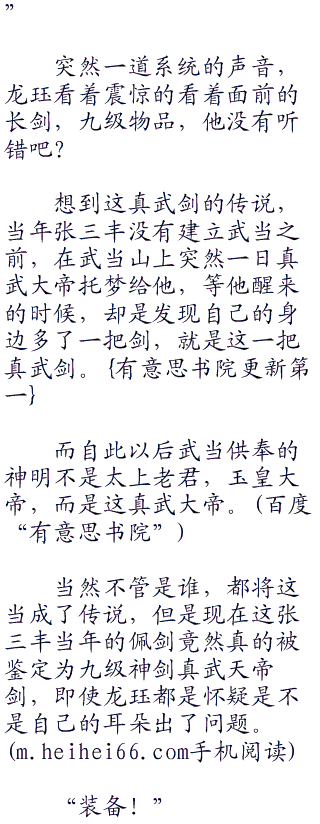 ”
突然一道系统的声音，
龙珏看着震惊的看着面前的
长剑，九级物品，他没有听
错吧？
想到这真武剑的传说，
当年张三丰没有建立武当之
前，在武当山上突然一日真
武大帝托梦给他，等他醒来
的时候，却是发现自己的身
边多了一把剑，就是这一把
真武剑。{有意思书院更新第
一}
而自此以后武当供奉的
神明不是太上老君，玉皇大
帝，而是这真武大帝。(百度
“有意思书院”)
当然不管是谁，都将这
当成了传说，但是现在这张
三丰当年的佩剑竟然真的被
鉴定为九级神剑真武天帝
剑，即使龙珏都是怀疑是不
是自己的耳朵出了问题。
(m.heihei66.com手机阅读)
“装备！”